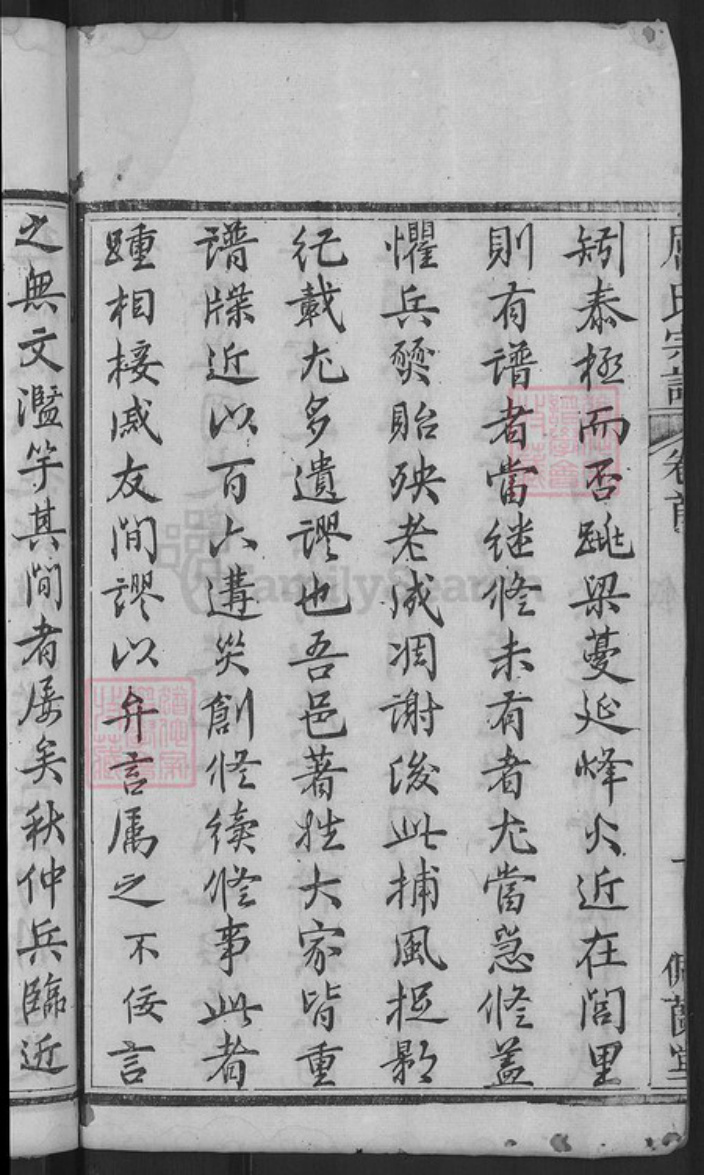 矧泰極而否跳梁蔓延烽火近在閭里
則有譜者當継修未有者尤當急修蓋
懼兵燹貽殃老成凋謝後此捕風捉影
紀載尤多遺謬也吾邑著姓大家皆重
譜牒近以百六遘災創修續修事此者
踵相接戚友間謬以弁言属之不佞言
之無文濫竽其間者屡矣秋仲兵臨近
氏宗譜
卷首
FamilySearch